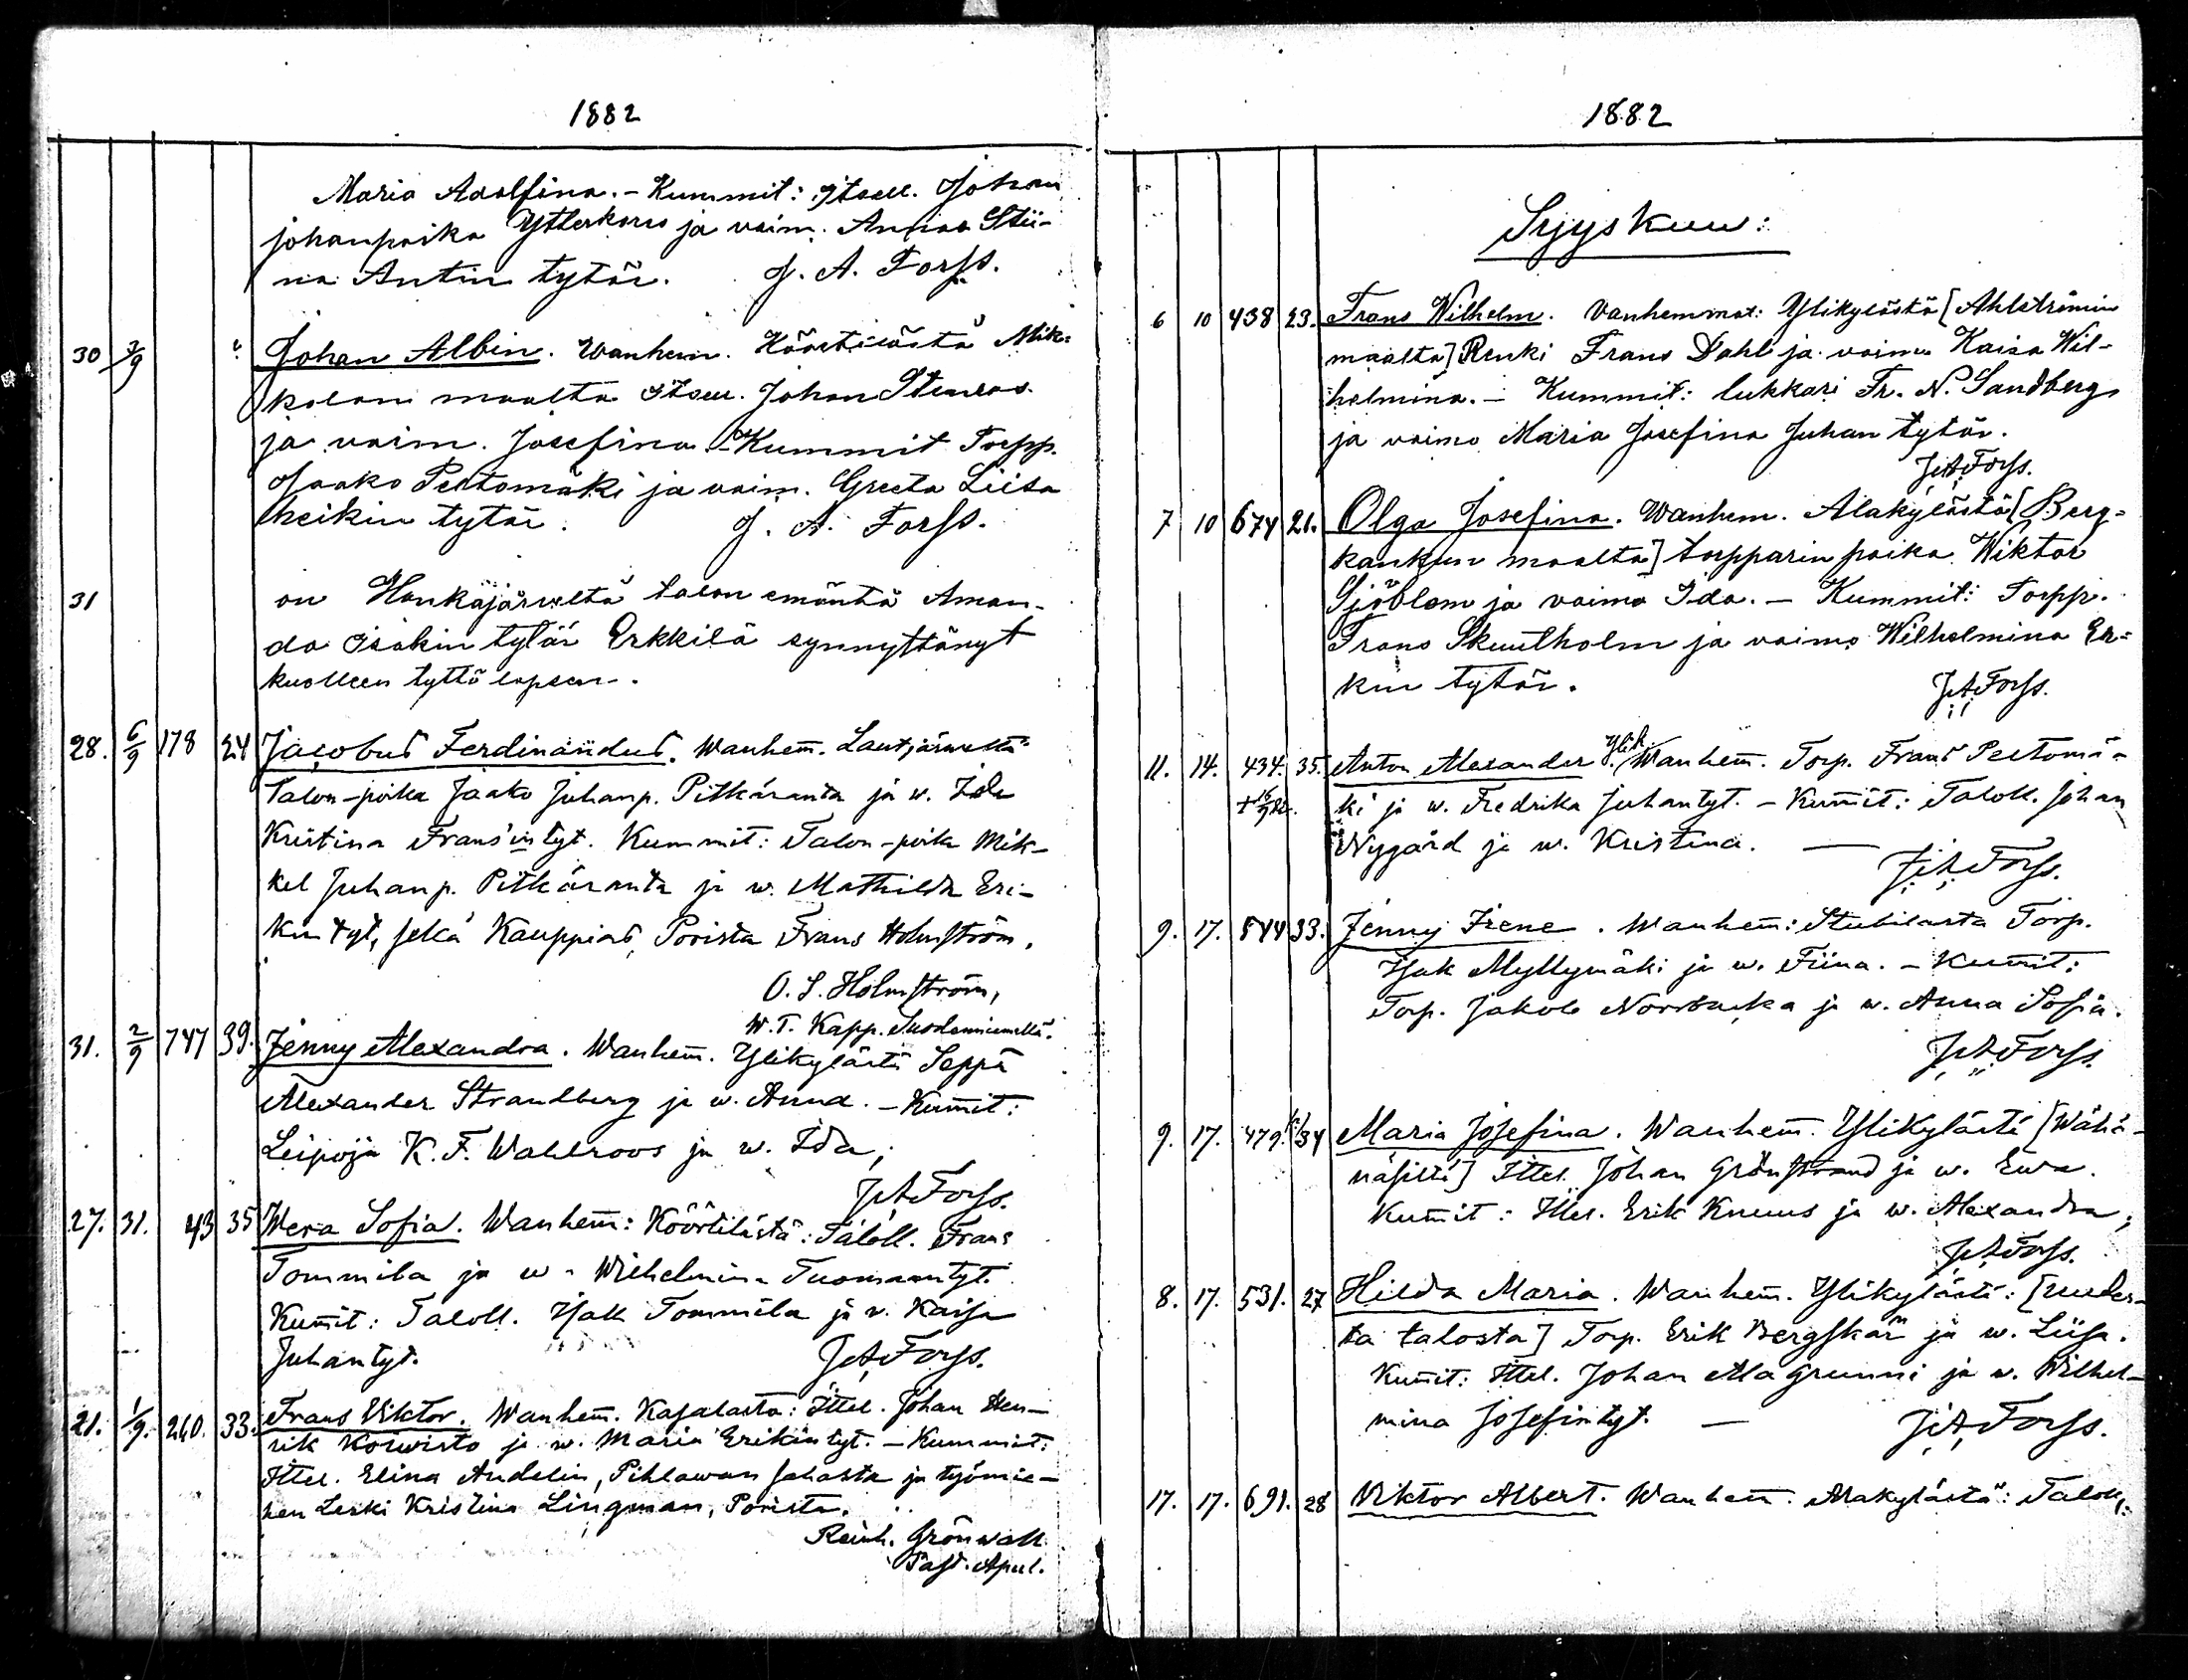 1882
Maria Adolfina. – Kummit: itsell. Johan
johanpoika Ytterkorss ja vaim. Annaa Stii-
na Antin tytär. J. A. Forss.
30 3/9 Johan Albin. Wanhem. Köörtilästä Mik-
kolan maalta itsell. Johan Stenroos
ja vaim. Josefina. – Kummit Torpp.
Jaako Peltomäki ja vaim. Greeta Liisa
heikin tytär. J. A. Forss.
31 on Honkajärveltä talon emäntä Aman-
da isakin tytär Erkkilä synnyttänyt
kuolleen tyttö lapsen.
28. 6/9 178 24 Jacobus Ferdinandus. Wanhem̅. Lautjärweltä
Talon-poika Jaako Juhanp. Pitkäranta ja w. Ida
Kristina Fransintyt. Kummit: Talon-poika Mik-
kel Juhanp. Pitkäranta ja w. Mathilda Eri-
kintyt, sekä Kauppias, Porista Frans Holmström.
O. S. Holmström,
W. T. Kapp. Susdenniemellä.
31. 2/9 747 39. Jenny Alexandra. Wanhem̅. Ylikylästä Seppä
Alexander Strandberg ja w. Anna. – Kum̅it:
Leipoja K. F. Wahlroos ja w. Ida;
JAForss.
27. 31. 43 35 Wera Sofia. Wanhem̅: Köörtilästä: Taloll. Frans
Tommila ja w. Wilhelmina Tuomaantyt.
Kum̅it: Taloll. Isak Tommila ja v. Kaisa
Juhantyt. JAForss.
21. 1/9. 260. 33. Frans Viktor. Wanhem̅. Kasalasta: Ittel. Johan Hen-
rik Koiwisto ja w. Maria Erikintyt. – Kummit:
Ittel. Elina Andelin, Pihlawan sahasta ja työmie-
hen Leski Kristina Lingman, Porista.
Reinh. Grönwall
Past. Apul.
1882
Syyskuu:
6 10 438 23. Frans Wilhelm. Vanhemmat: Ylikylästä [Ahlströmin
maalta] Renki Frans Dahl ja vaimo Kaisa Wil-
helmina. – Kummit: lukkari Fr. N. Sandberg
ja vaimo Maria Josefina Juhan tytär.
JAForss.
7 10 674 21. Olga Josefina. Wanhem. Alakylästä [Berg-
kankun maalta] torpparin poika Wiktor
Sjöblom ja vaimo Ida. – Kummit: Torpp.
Frans Skuutholm ja vaimo Wilhelmina Er-
kin tytär. JAForss.
11. 14. 434. 35. Anton Alexander. Ylik. Wanhem̅. Torp. Frans Peltomä-
ki ja w. Fredrika Juhantyt. – Kum̅it: Taloll. Johan
Nygård ja w. Kristina. —
JAForss.
9. 17. 544 33. Jenny Irene. Wanhem̅: Stubilasta Torp.
Isak Myllymäki ja w. Fiina. – Kum̅it:
Torp. Jakob Norrbacka ja w. Anna Sofia.
JAForss.
9. 17. 479. 34 Maria Josefina. Wanhem̅. Ylikylästä [Wähä-
näsiltä] Ittel. Johan Grönstrand ja w. Ewa.
Kum̅it: Ittel. Erik Knuus ja w. Alexandra;
JAForss.
8. 17. 531. 27 Hilda Maria. Wanhem̅. Ylikylästä: [uudes-
ta talosta] Torp. Erik Bergskär ja w. Liisa.
Kum̅it: Ittel. Johan Alagrunni ja w. Wilhel-
mina Josefintyt. — JAForss.
17. 17. 691. 28 Viktor Albert. Wanhem̅. Alakylästä: Taloll.